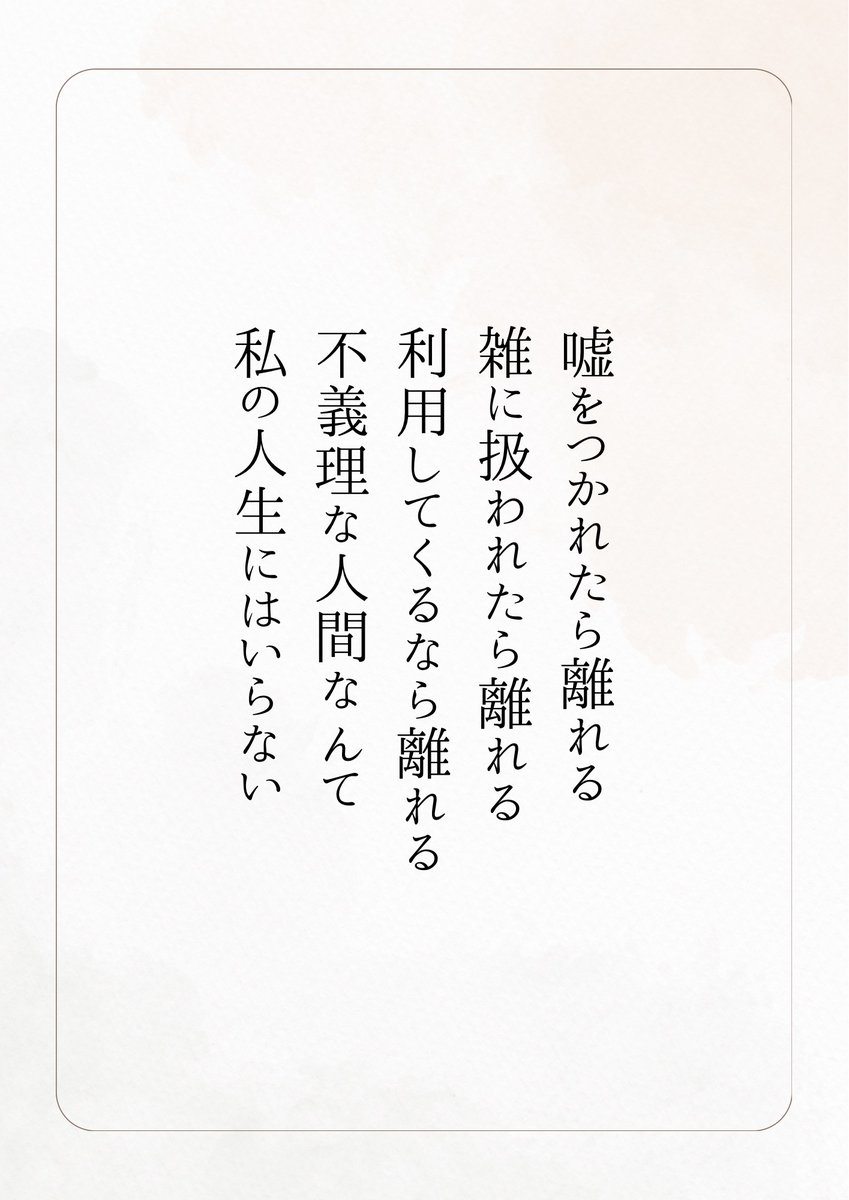 嘘をつかれたら離れる
雑に扱われたら離れる
利用してくるなら離れる
不義理な人間なんて
私の人生にはいらない